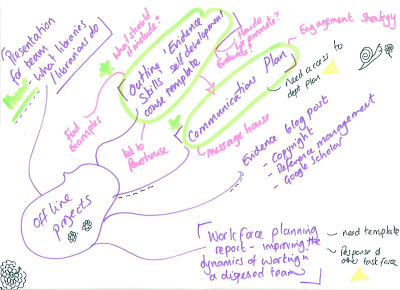 Presentation
for team
What libraries
/librarians do
what should
it include?
Outline 'Evidence
Skills' self development
course template
How do
Evaluate & promote?
Engagement strategy
Find
Examples
Link to
Powerhouse
Communications Plan
need access to
dept plan
message house
Evidence blog post
- Copyright
- Reference management
- Google Scholar
Offline
Projects
Workforce planning
report - improving the
dynamics of working in
a dispersed team
need template
Response of
other task force